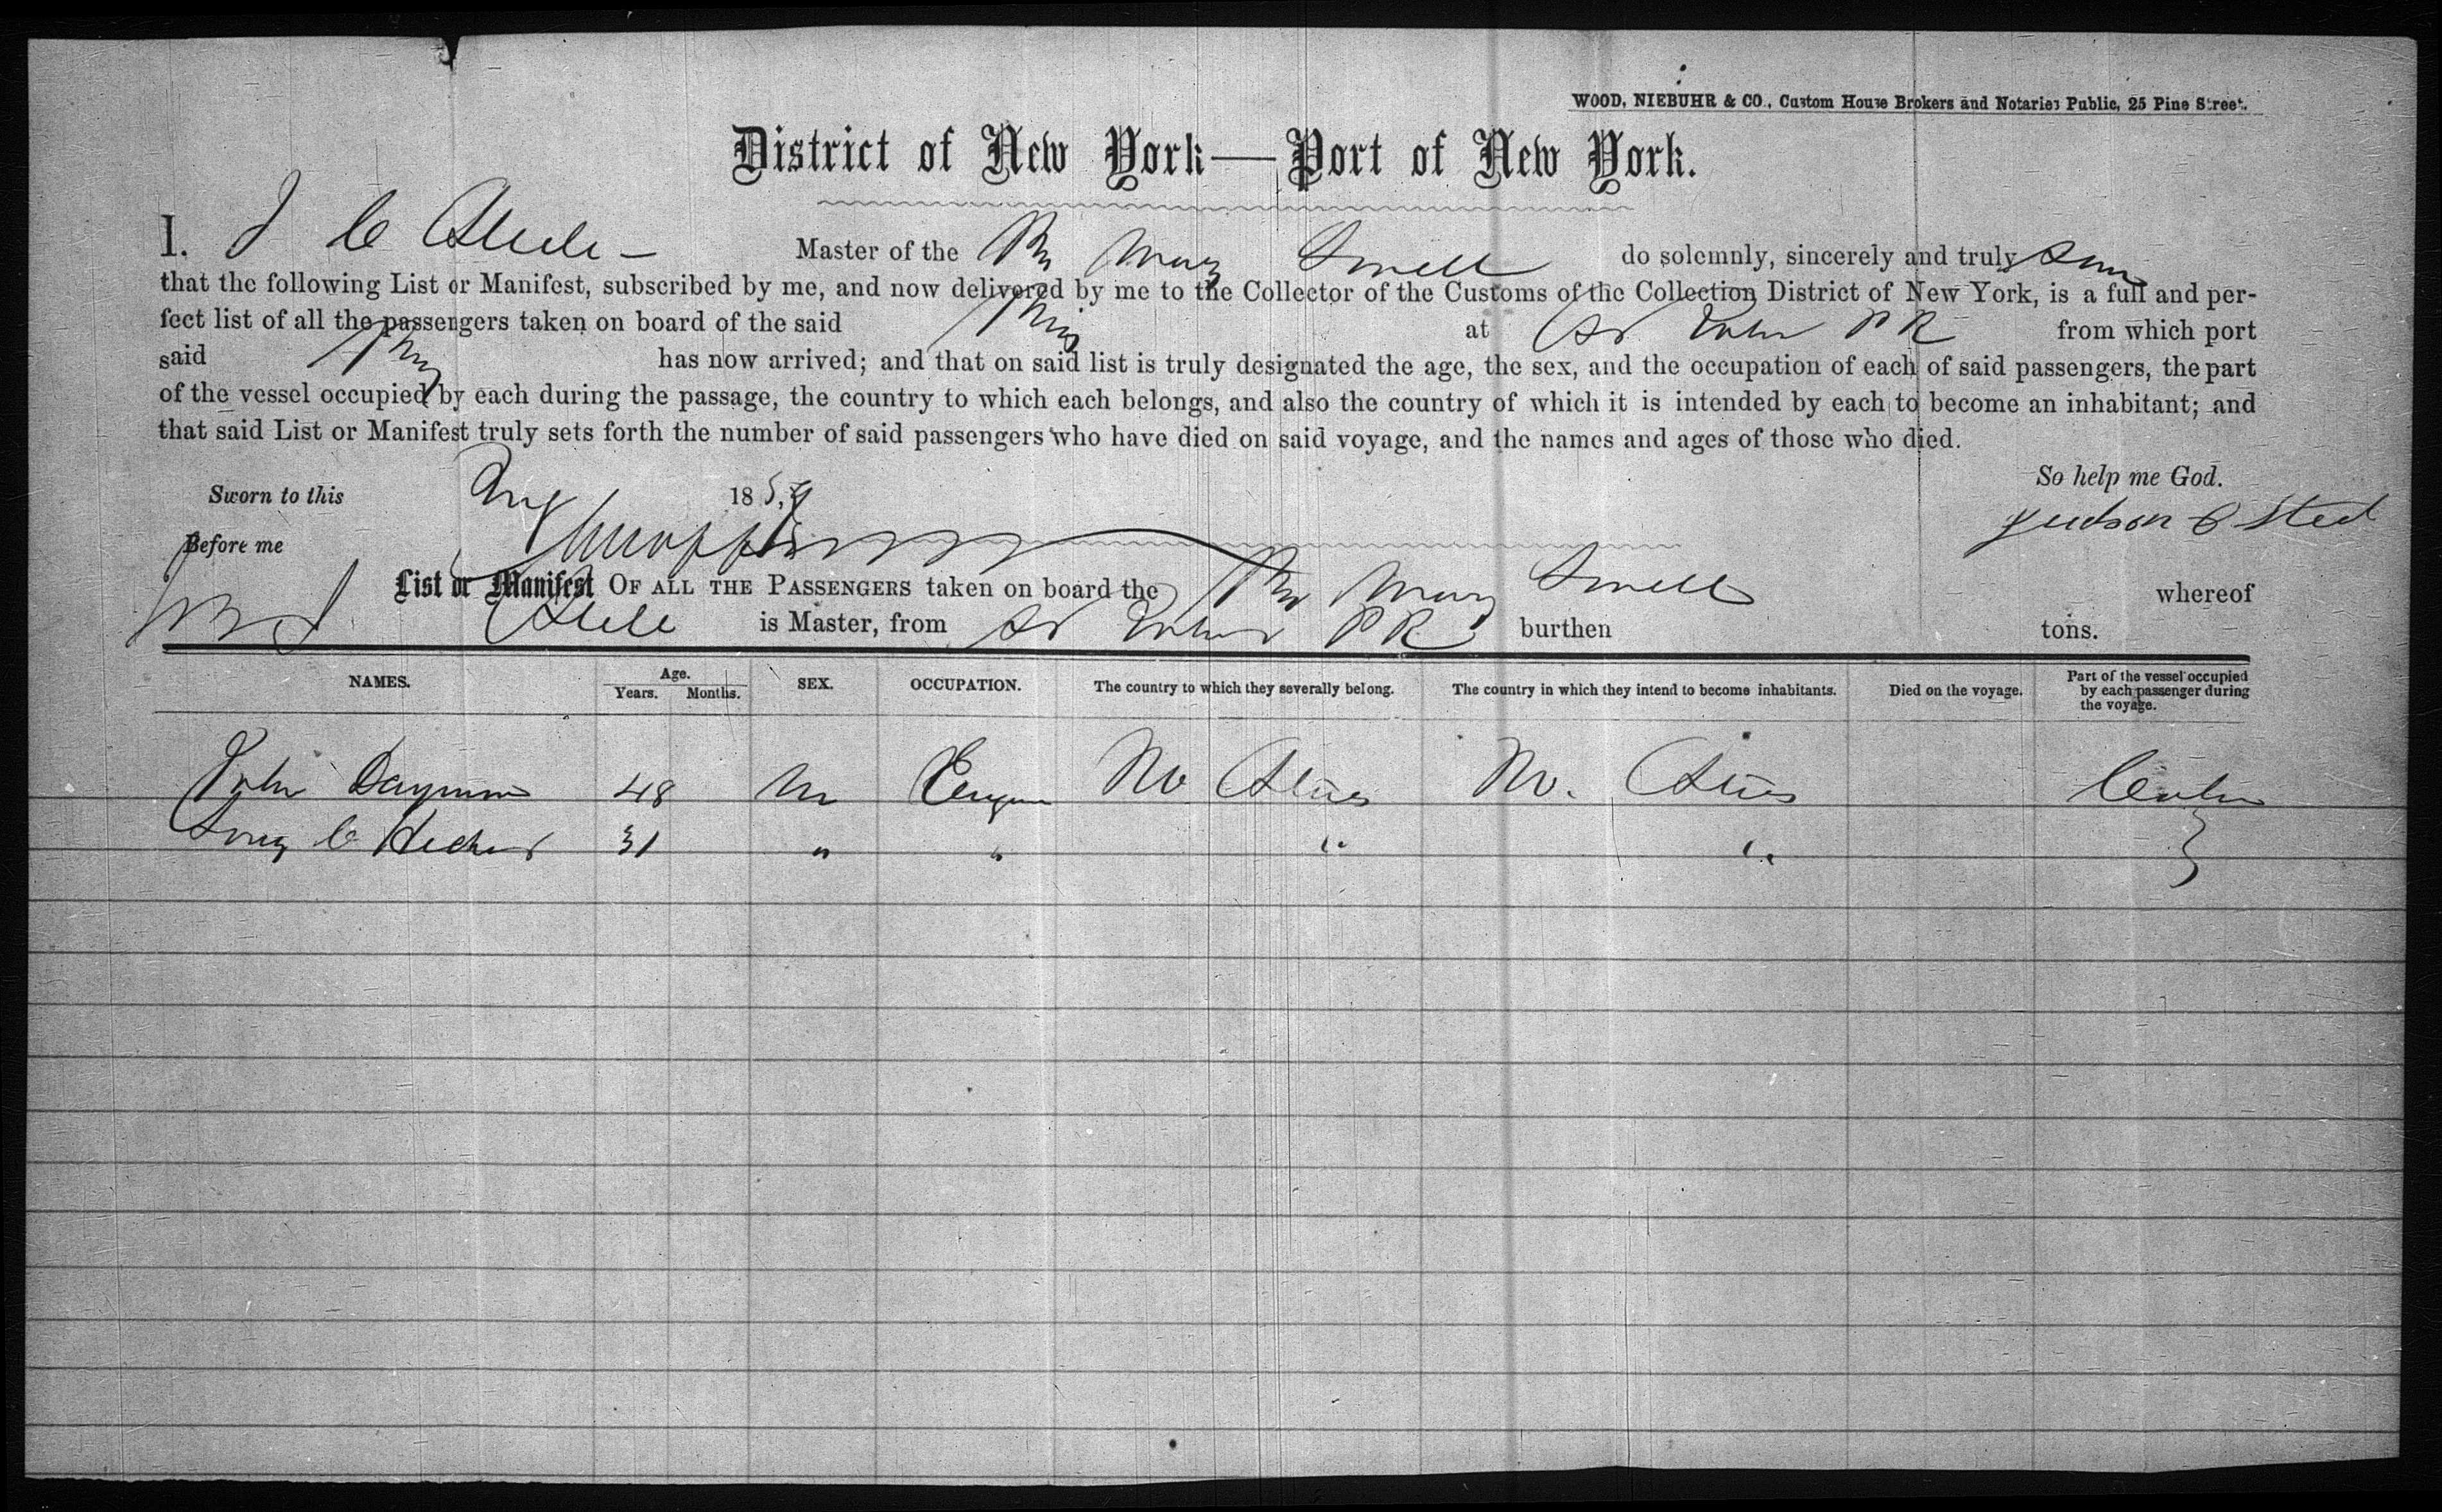 WOOD, NIEBUHR & CO., Custom House Brokers and Notaries Public, 25 Pine Street.
District of New York—Port of New York.
I. J C Steele — Master of the Mary do solemnly, sincerely and truly
that the following List or Manifest, subscribed by me, and now delivered by me to the Collector of the Customs of the Collection District of New York, is a full and per-
fect list of all the passengers taken on board of the said at P R from which port
said has now arrived; and that on said list is truly designated the age, the sex, and the occupation of each of said passengers, the part
of the vessel occupied by each during the passage, the country to which each belongs, and also the country of which it is intended by each to become an inhabitant; and
that said List or Manifest truly sets forth the number of said passengers who have died on said voyage, and the names and ages of those who died.
So help me God.
Sworn to this Aug 1859
Judson C Steel
Before me
List or Manifest OF ALL THE PASSENGERS taken on board the Mary whereof
Steele is Master, from P R burthen tons.
NAMES. Age. Years. Months. SEX. OCCUPATION. The country to which they severally belong. The country in which they intend to become inhabitants. Died on the voyage. Part of the vessel occupied by each passenger during the voyage.
John 48 M
C 31 " " " "